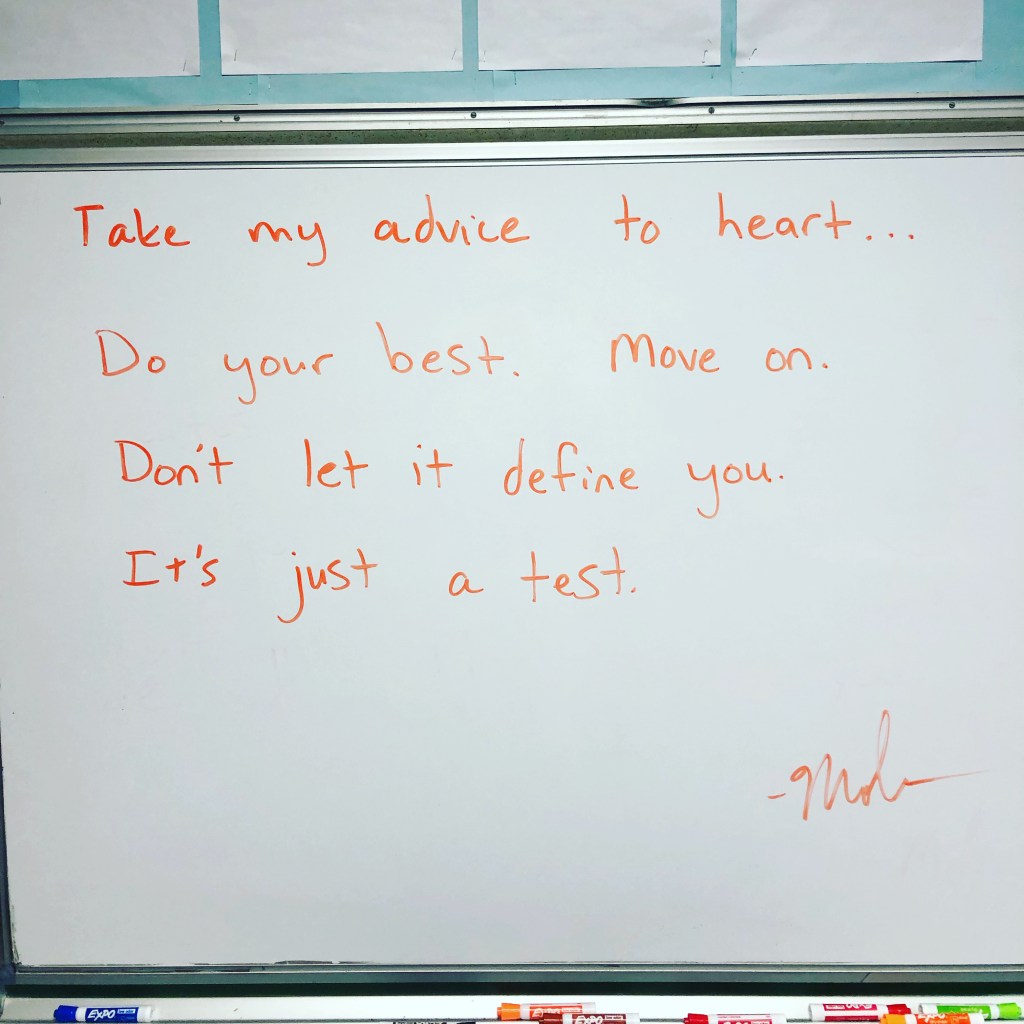 Take my advice to heart...
Do your best. Move on.
Don't let it define you.
It's just a test.
EXPO
EXPO